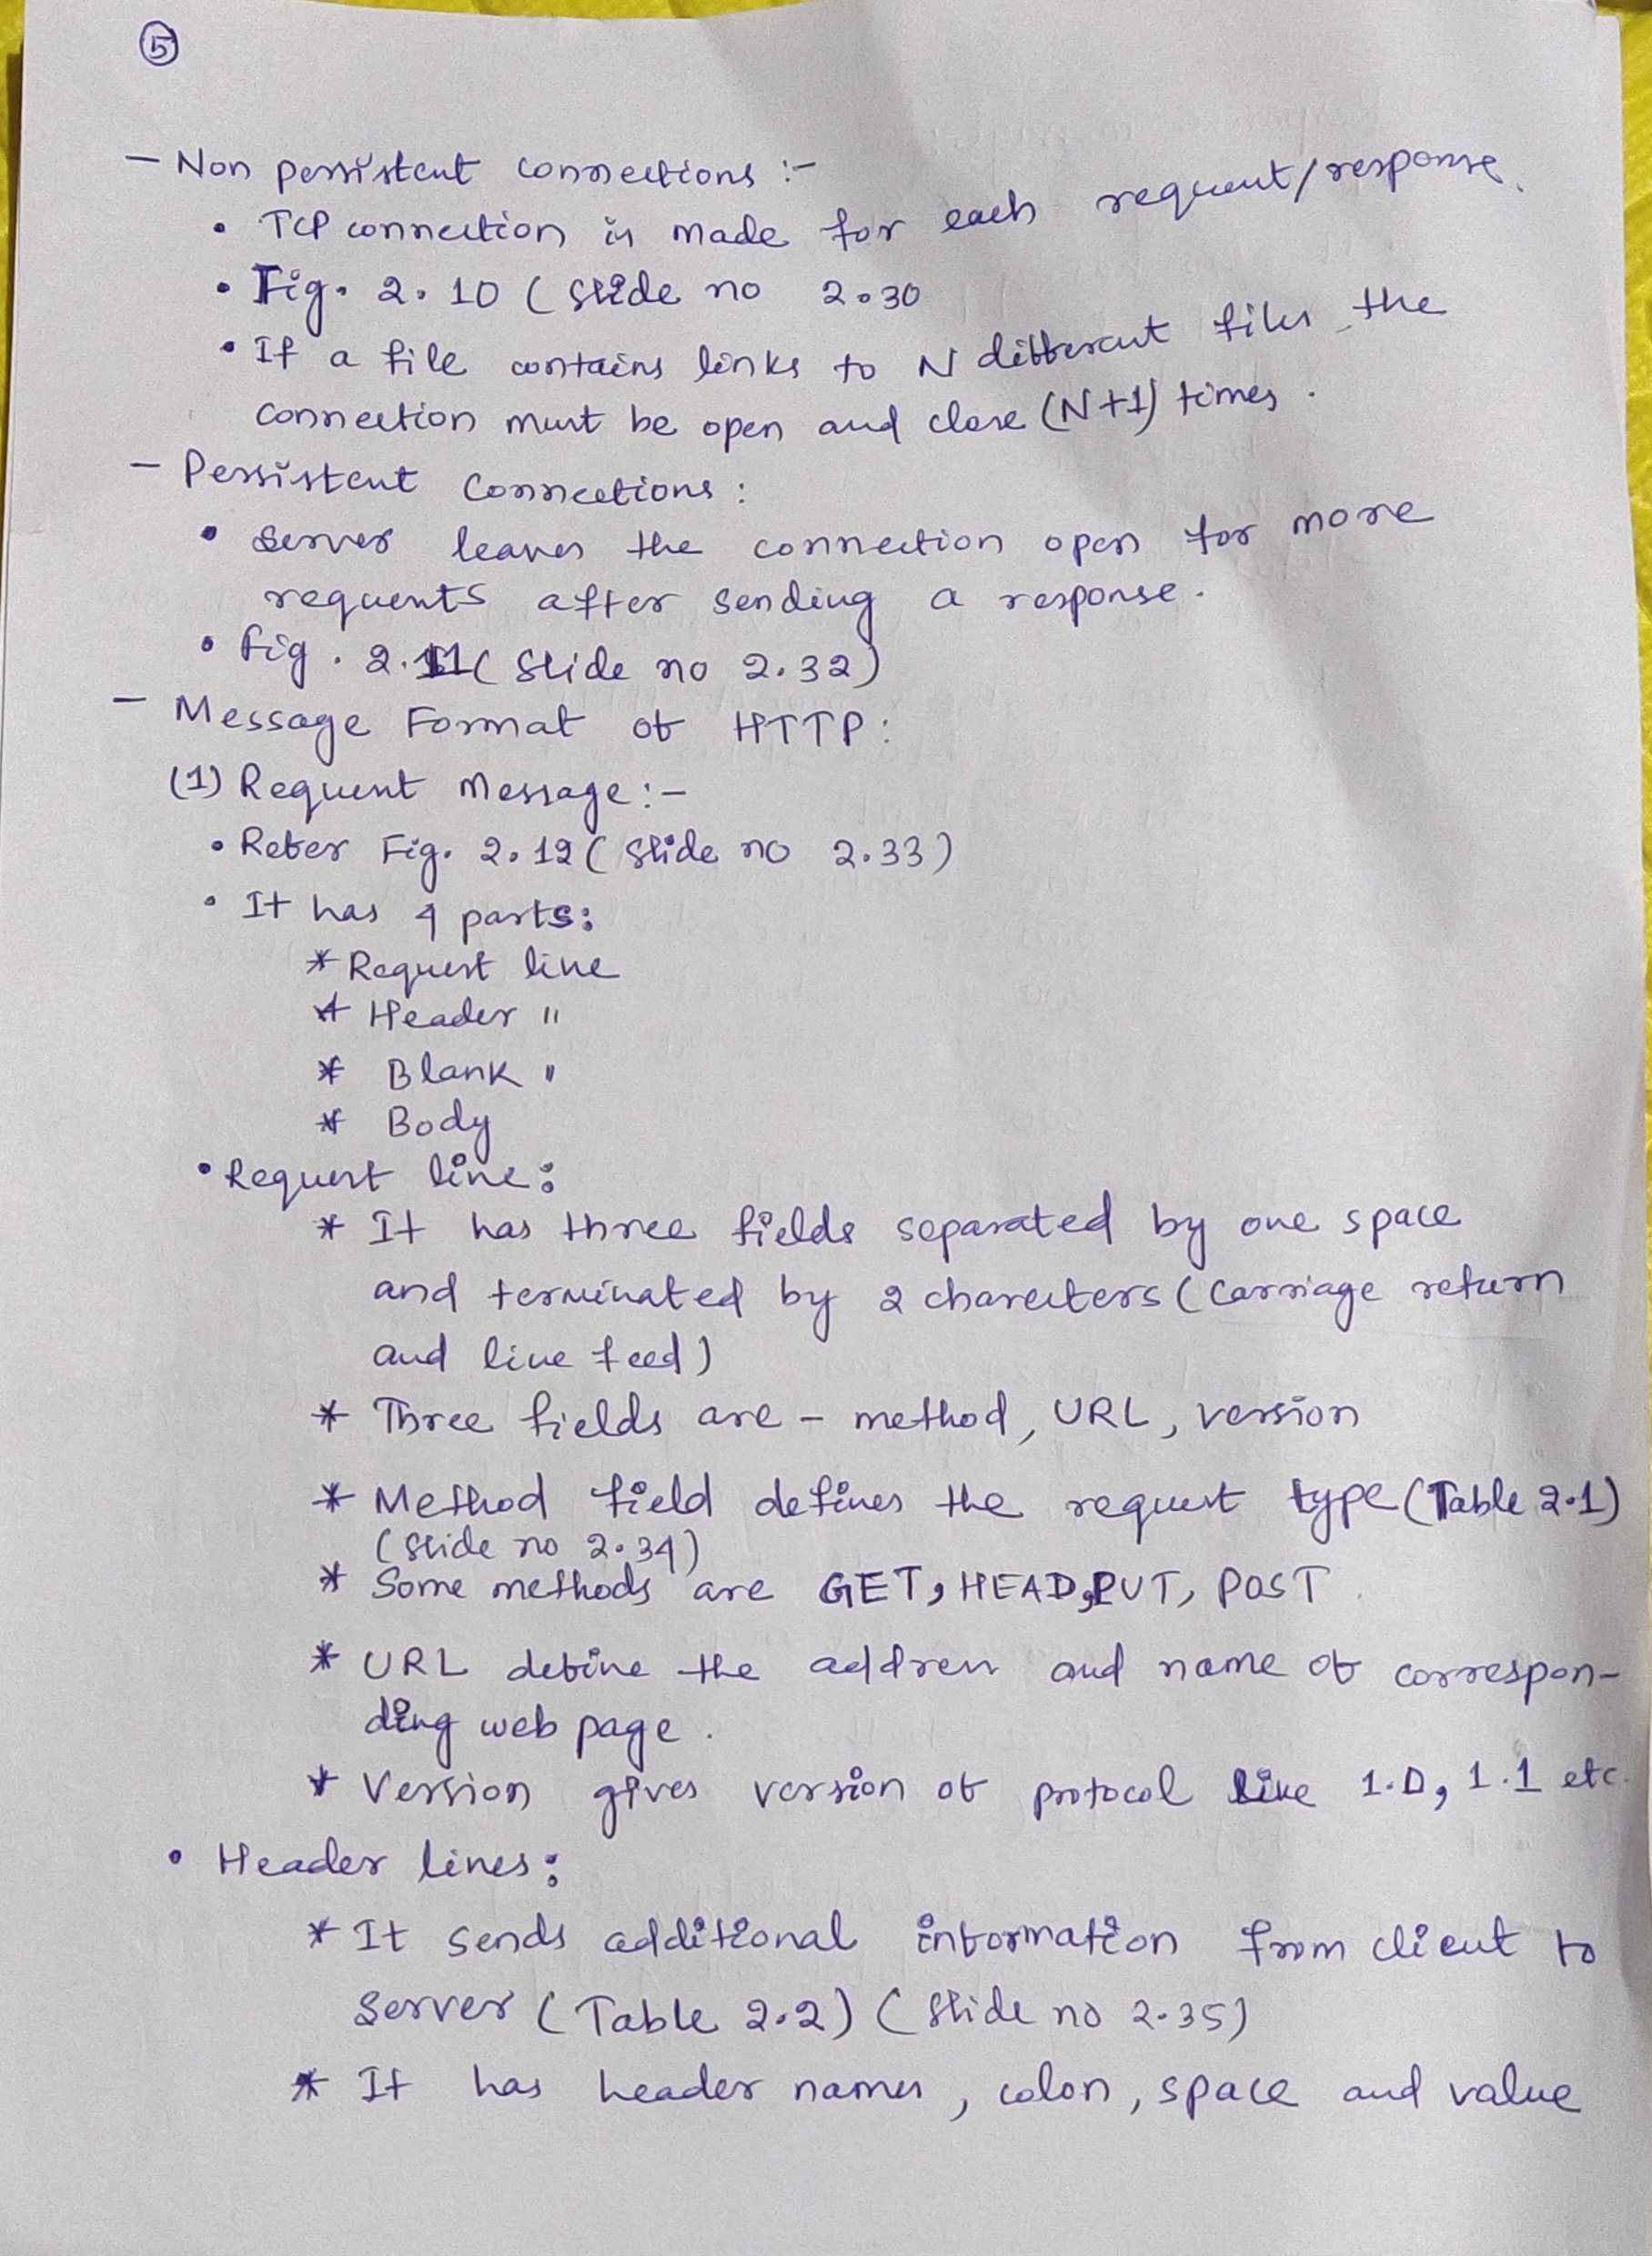 5
– Non persistent connections :-
• TCP connection is made for each request/response.
• Fig. 2.10 ( Slide no 2.30
• If a file contains links to N different files the
connection must be open and close (N+1) times.
– Persistent Connections :
• Server leaves the connection open for more
requests after sending a response.
• Fig. 2.11 ( Slide no 2.32)
– Message Format of HTTP:
(1) Request Message :-
• Refer Fig. 2.12 ( Slide no 2.33)
• It has 4 parts:
* Request line
* Header "
* Blank "
* Body
• Request line:
* It has three fields separated by one space
and terminated by 2 charecters ( Carriage return
and line feed)
* Three fields are – method, URL, version
* Method field defines the request type (Table 2.1)
(Slide no 2.34)
* Some methods are GET, HEAD, PUT, POST
* URL define the address and name of correspon-
ding web page.
* Version gives version of protocol like 1.0, 1.1 etc.
• Header lines:
* It sends additional information from client to
server ( Table 2.2) ( Slide no 2.35)
* It has header names, colon, space and value